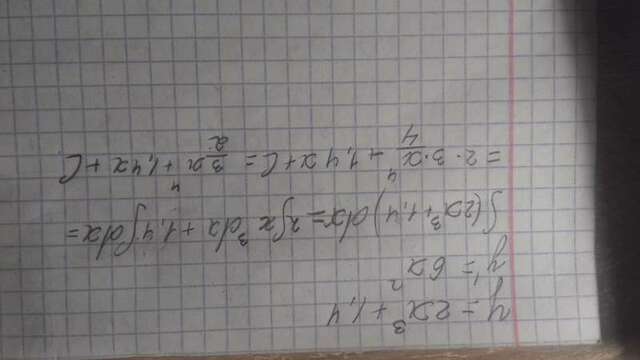 y = 2x³ + 1,4
y' = 6x²
∫(2x³+1,4)dx = 2∫x³dx + 1,4∫dx =
= 2·3·x⁴/4 + 1,4x + C = 3x⁴/2 + 1,4x + C